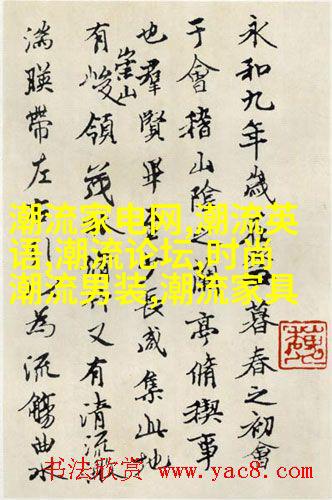 永和九年歲在暮春之初會
于會稽山陰之蘭亭脩稧事
也羣賢畢至少長咸集此地
有崇山峻領茂林脩竹又有清流激
湍暎帶左右引為流觴曲水
潮流家电网,潮流英
语,潮流论坛,时尚
潮流男装,潮流家具
书法欣赏 www.yac8.com